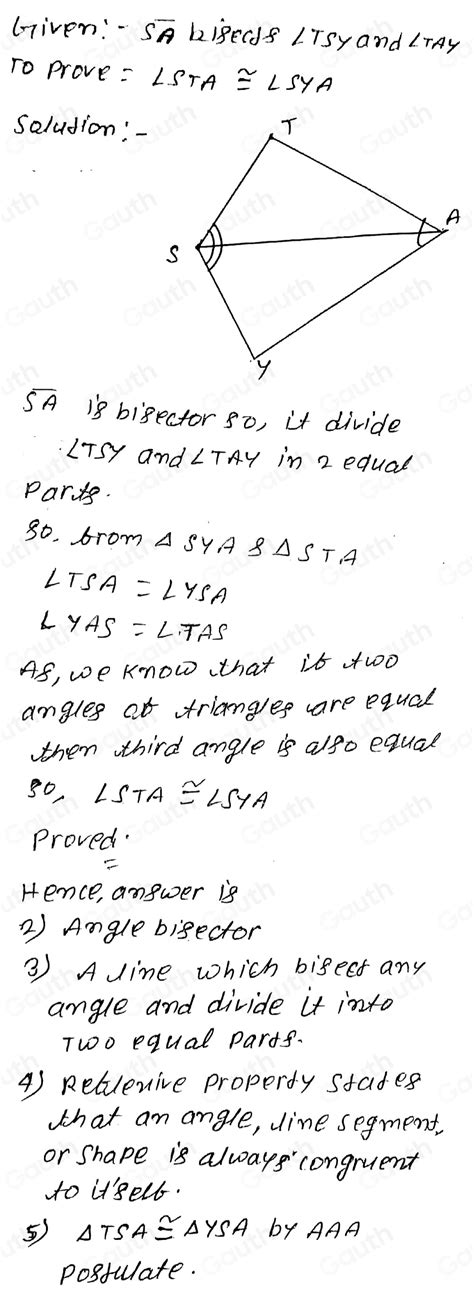 Given:- SA bisects ∠TSY and ∠TAY
To prove = ∠STA ≅ ∠SYA
Solution:-
T
A
S
Y
SA is bisector so, it divide
∠TSY and ∠TAY in 2 equal
Parts.
So. from △ SYA & △ STA
∠TSA = ∠YSA
∠YAS = ∠TAS
As, we know that if two
angles of triangles are equal
then third angle is also equal
so, ∠STA ≅ ∠SYA
Proved.
Hence, answer is
2) Angle bisector
3) A line which bisect any
angle and divide it into
Two equal parts.
4) Reflexive property states
that an angle, line segment,
or shape is always congruent
to it'self.
5) △TSA ≅ △YSA by AAA
Postulate.